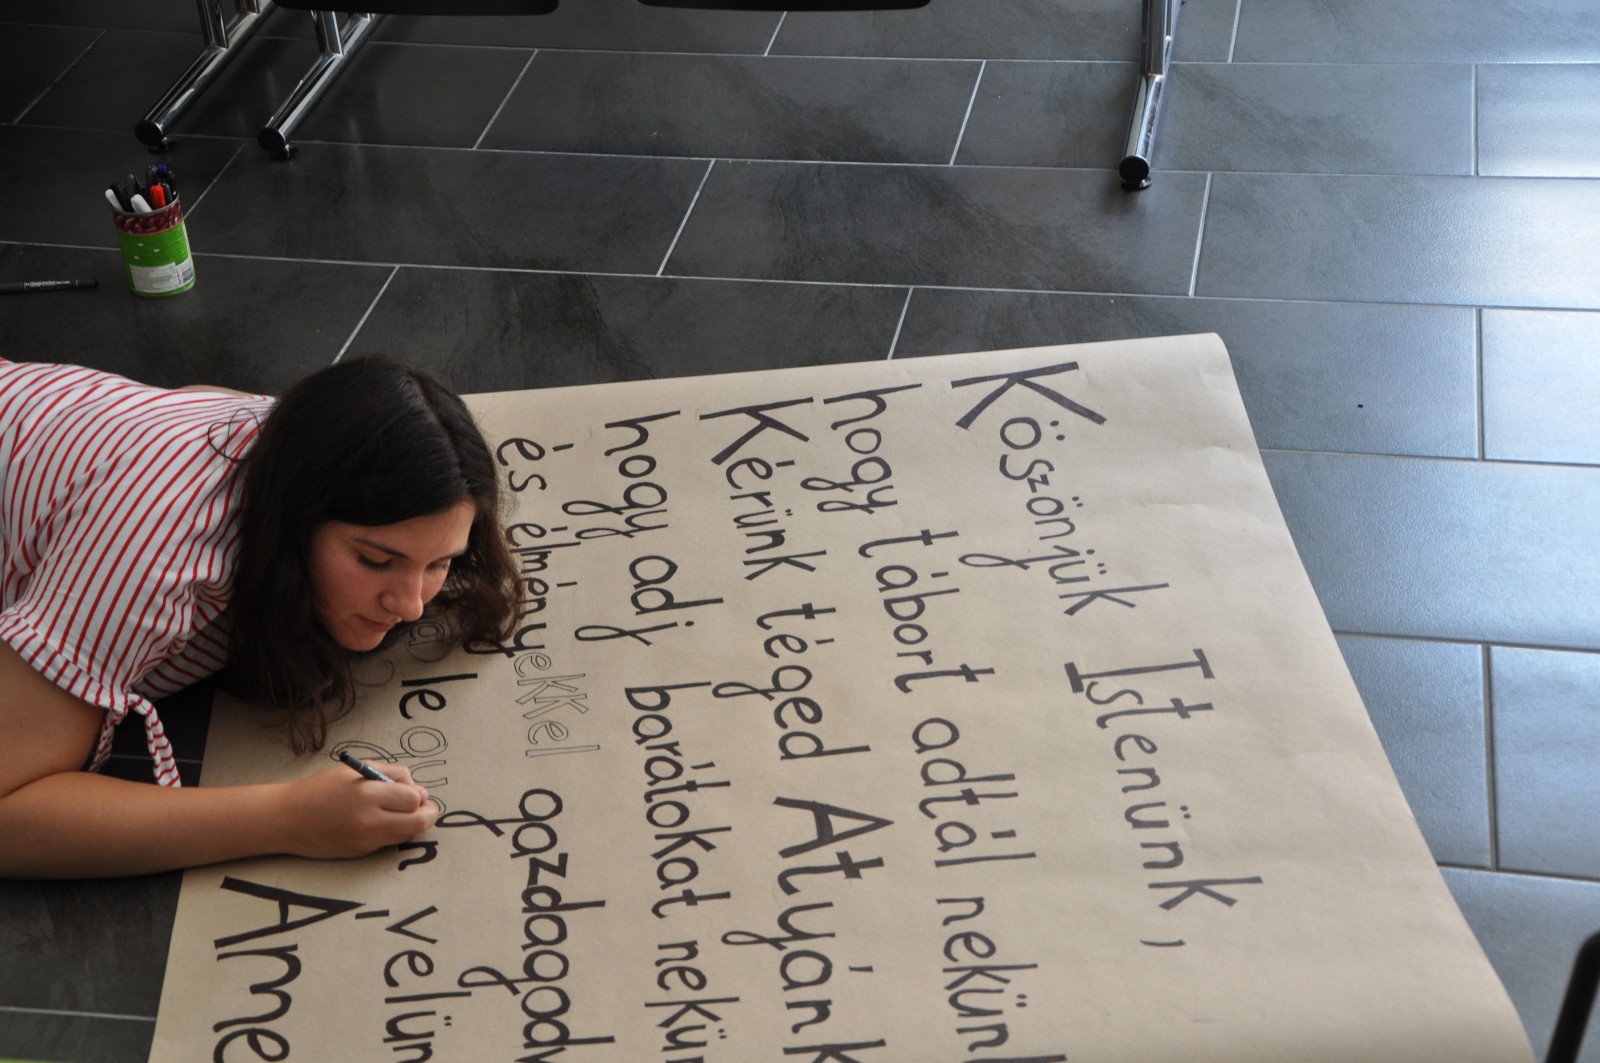 Köszönjük Istenünk,
hogy tábort adtál nekünk
Kérünk téged Atyánk
hogy adj barátokat nekün
és élményekkel gazdagodv
legyen velün
Ame